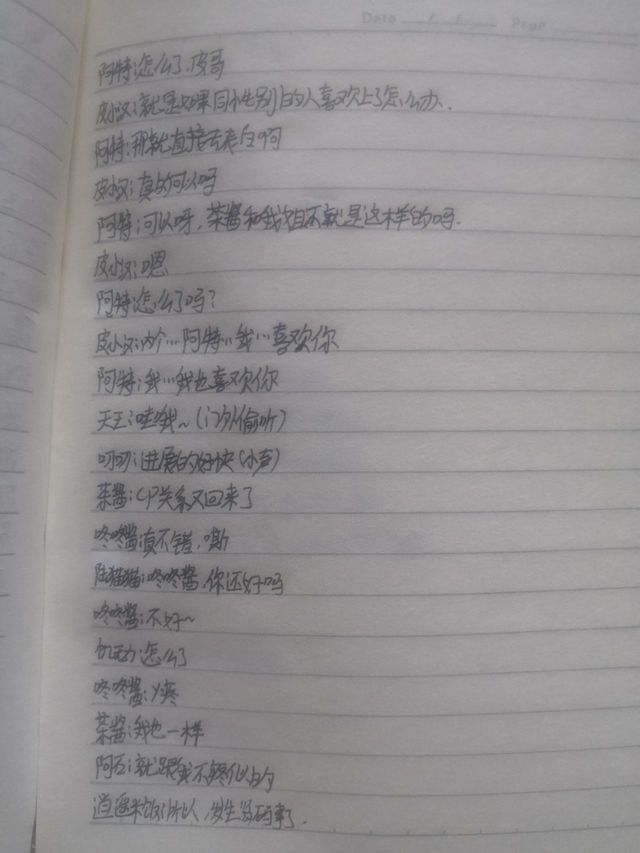 Date Page
阿特:怎么了,皮哥
皮小汉:就是如果同小生别的人喜欢上了怎么办.
阿特:那就直接去表白啊
皮小汉:真的可以吗
阿特:可以呀,茶酱和我姐不就是这样的吗.
皮小汉:嗯
阿特:怎么了吗?
皮小汉:内个…阿特…我…喜欢你
阿特:我…我也喜欢你
天王:哇哦~(门外偷听)
叨叨:进展的好快(小声)
茶酱:CP关系又回来了
咚咚酱:真不错,嘶
陆猫猫:咚咚酱,你还好吗
咚咚酱:不好~
饥动:怎么了
咚咚酱:疼
茶酱:我也一样
阿石:就跟我不疼似的
逍遥 所以,发生啥事了.